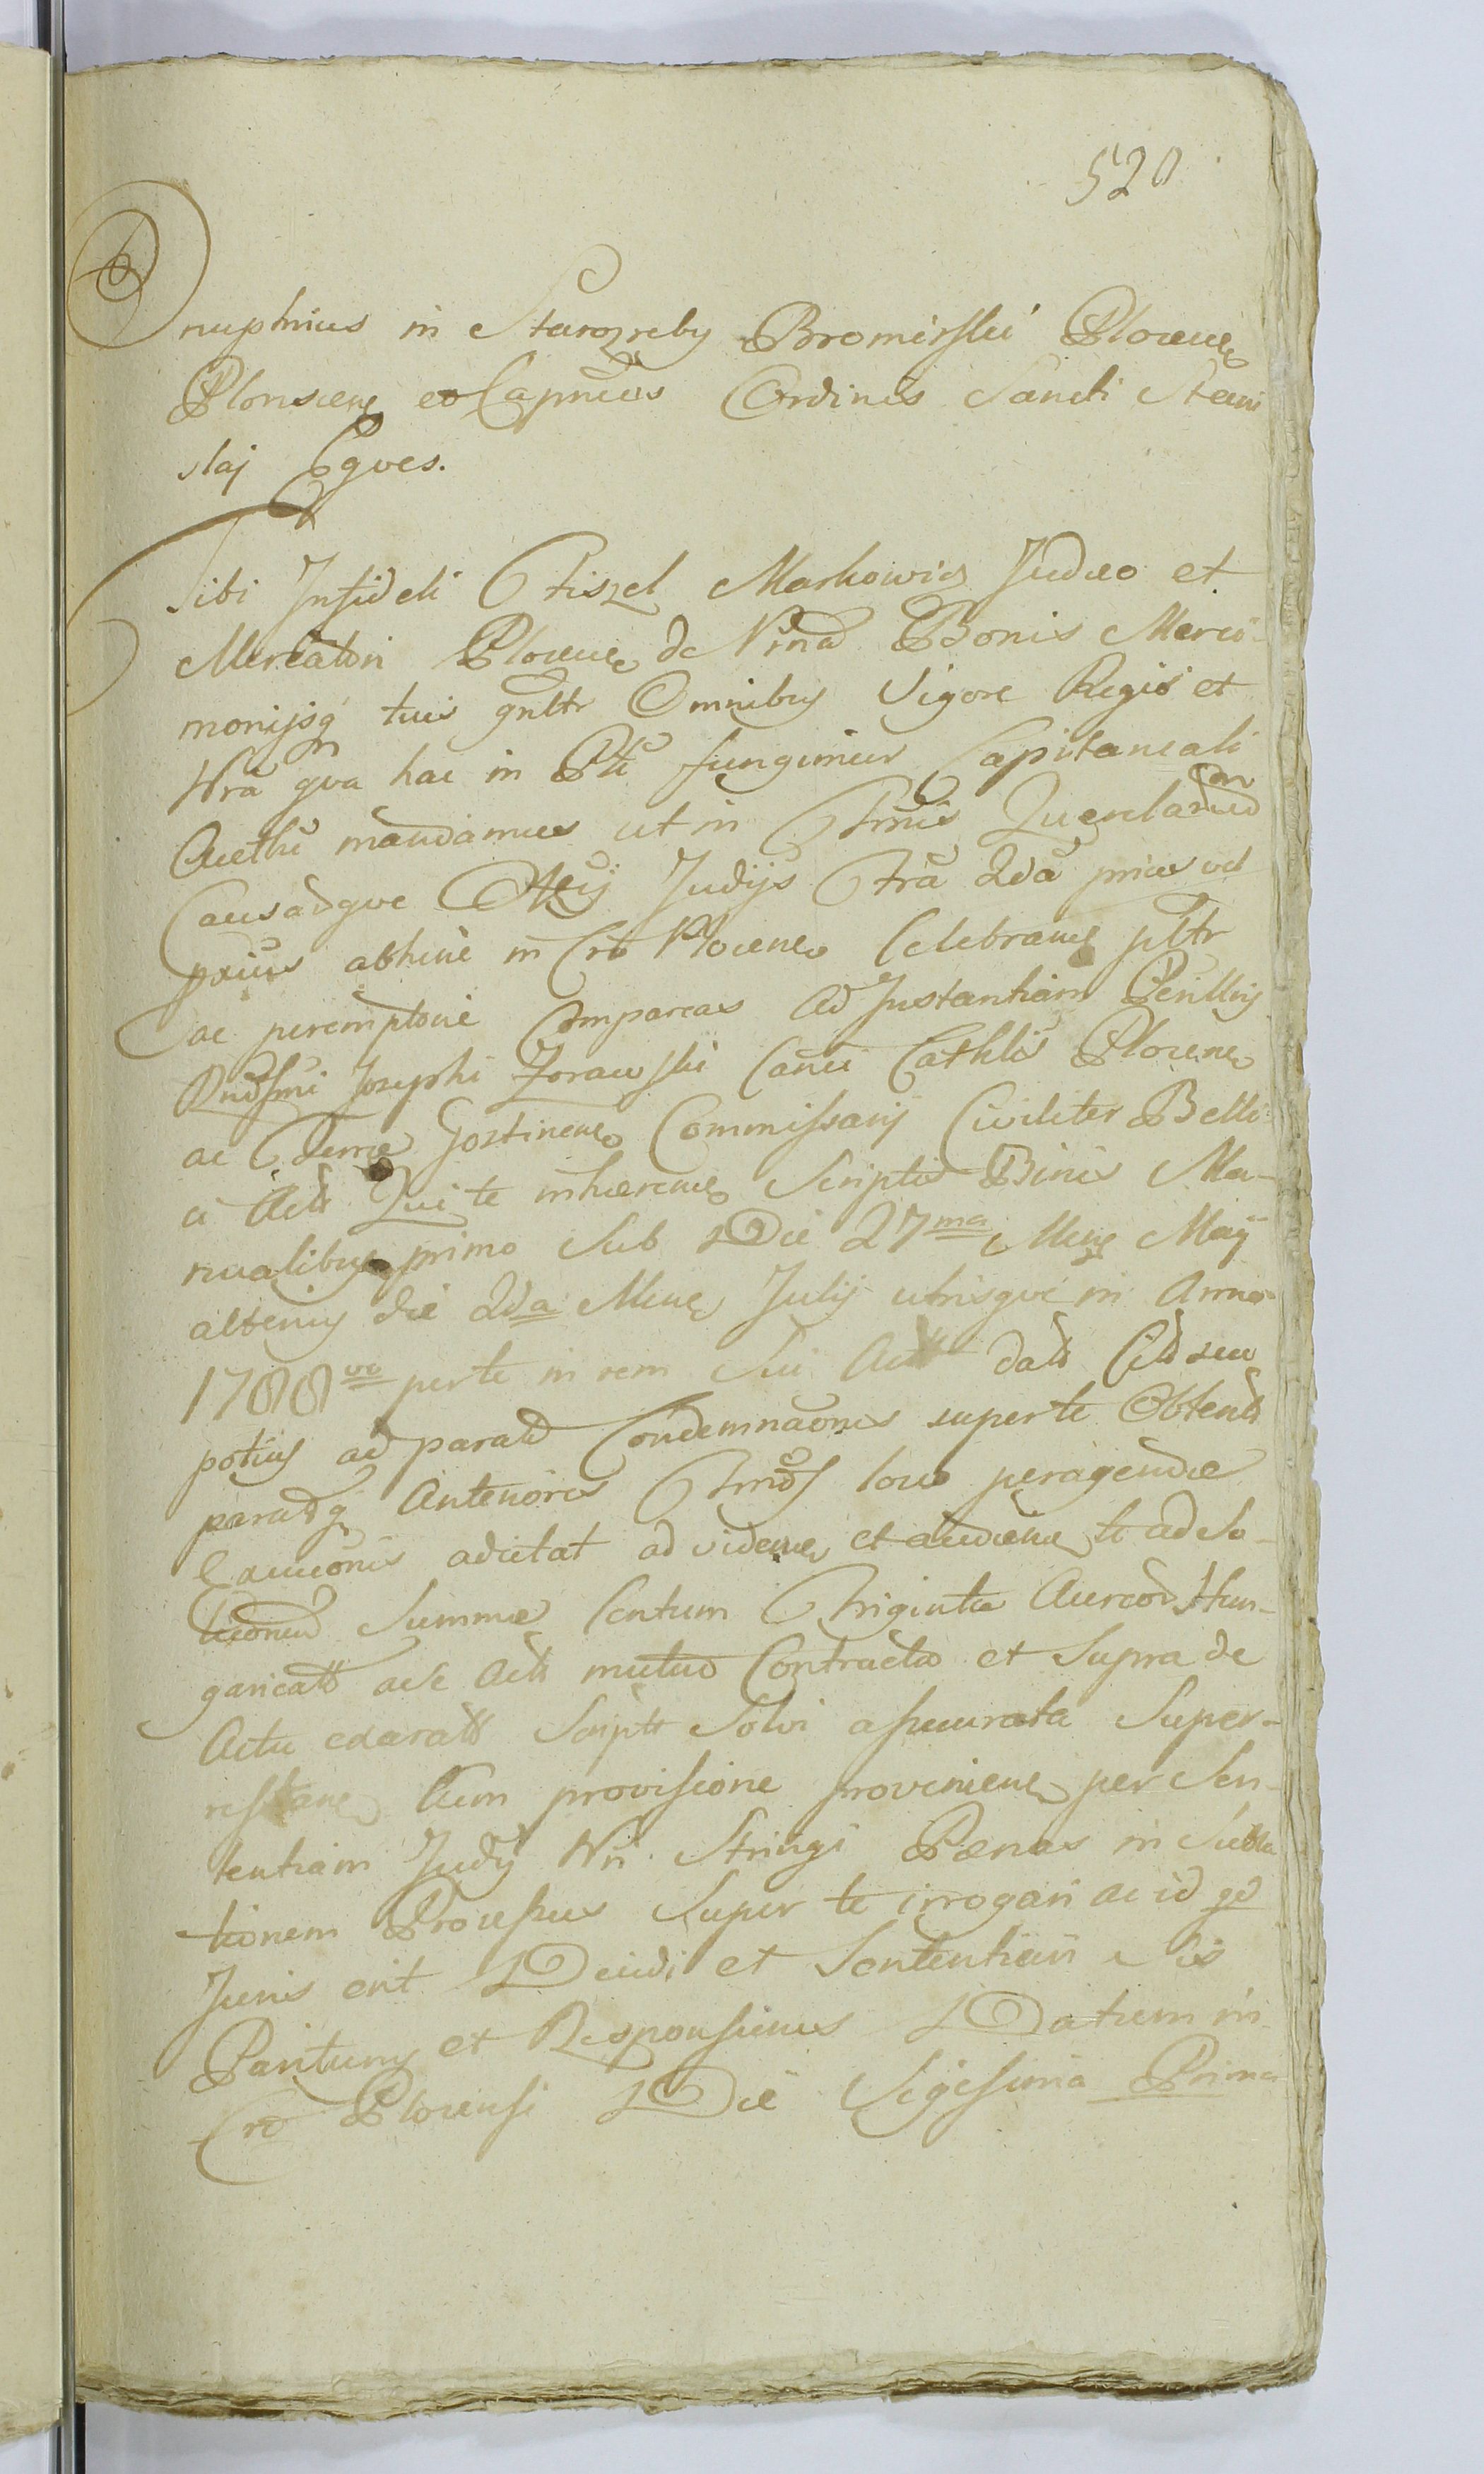 520
Onuphrius in Starozreby Bromirski Plocen
Plonscen et Capneus Ordinis Sancti Stani
slaj Eques.
Tibi Infideli Fiszel Markowicz Judæo et
Mercatori Plocen de Psona Bonis Merci-
monijsq tuis gnltr Omnibus Vigore Regia et
Nra qva hac in Pte fungimur Capitaneali
Autte mandamus ut in Trmis Querelarum
Causarqve Judijs Tra 2da prius vel
abhinc in Cro Plocen Celebran pltr
ac peremptorie Compareas Ad Instantiam Perillris
Rndsmi Josephi Zorawski Canci Cathlis Plocen
ac Terræ Gostinen Commissarij Civiliter Belli-
ci Act Qui te inhæren Scriptis Binis Ma-
nualibus primo Sub Die 27ma Men Maij
alterius die 2da Men Julij utrisqve in Anno
1788vo per te in rem Sui Act dats seu
potius ad parata Condemnaonis super te Obtent
anterioris loco peragendæ
adcitat ad viden et audien te ad So-
Summæ Centum Triginta Aureor Hun-
garicalt ad Act mutuo Contracta et Supra de
Actu exarats Script Solvi assecurata Super-
restan tum provisione provenien per Sen-
tentiam Judij Nri Stringi Pœnas in
tionem Processus Super te irrogari ac id qd
Juris erit Decidi et Sententiari Sis
Pariturus et Responsurus Datum in
Cro Plocensi Die Vigesima Prima